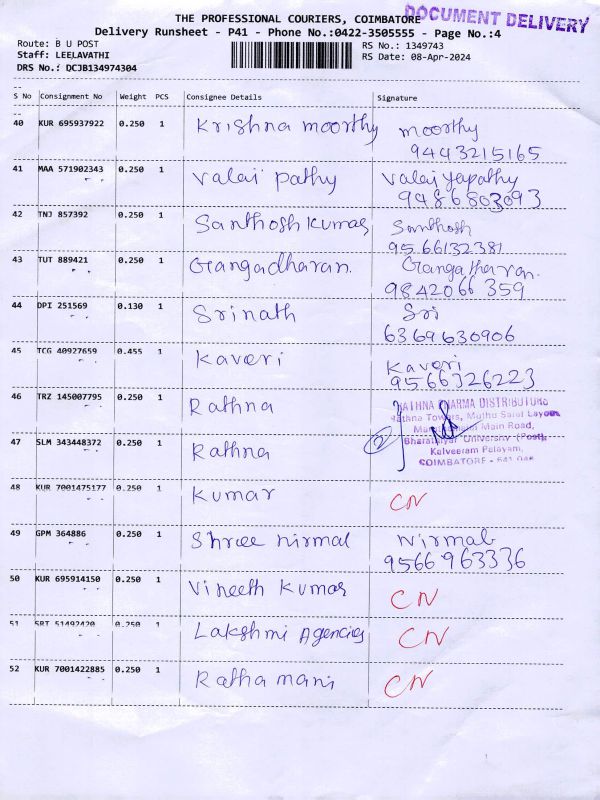 THE PROFESSIONAL COURIERS, COIMBATORE
DOCUMENT DELIVERY
Delivery Runsheet - P41 - Phone No.:0422-3505555 - Page No.:4
Route: B U POST RS No.: 1349743
Staff: LEELAVATHI RS Date: 08-Apr-2024
DRS No.: DCJB134974304
--
S No Consignment No Weight PCS Consignee Details Signature
--
40 KUR 695937922 0.250 1 Krishna moorthy moorthy
9443215165
41 MAA 571902343 0.250 1 Valai pathy Valaiyapathy
9486803093
42 TNJ 857392 0.250 1 Santhosh kumar Santhosh
9566132381
43 TUT 889421 0.250 1 Gangadharan. Gangatharan.
9842066359
44 DPI 251569 0.130 1 Srinath Sri
6369630906
45 TCG 40927659 0.455 1 Kaveri Kaveri
9566326223
46 TRZ 145007795 0.250 1 Rathna RATHNA PHARMA DISTRIBUTORS
Rathna Towers, Muthu Saral Layout
Main Road,
47 SLM 343448372 0.250 1 Rathna 2 Bharathiyar University (Post)
Kalveeram Palayam,
COIMBATORE - 641 046
48 KUR 7001475177 0.250 1 Kumar CN
49 GPM 364886 0.250 1 Shree nirmal Nirmal
9566963336
50 KUR 695914150 0.250 1 Vineeth Kumar CN
51 SRT 51492420 0.250 1 Lakshmi Agencies CN
52 KUR 7001422885 0.250 1 Ratha mani CN